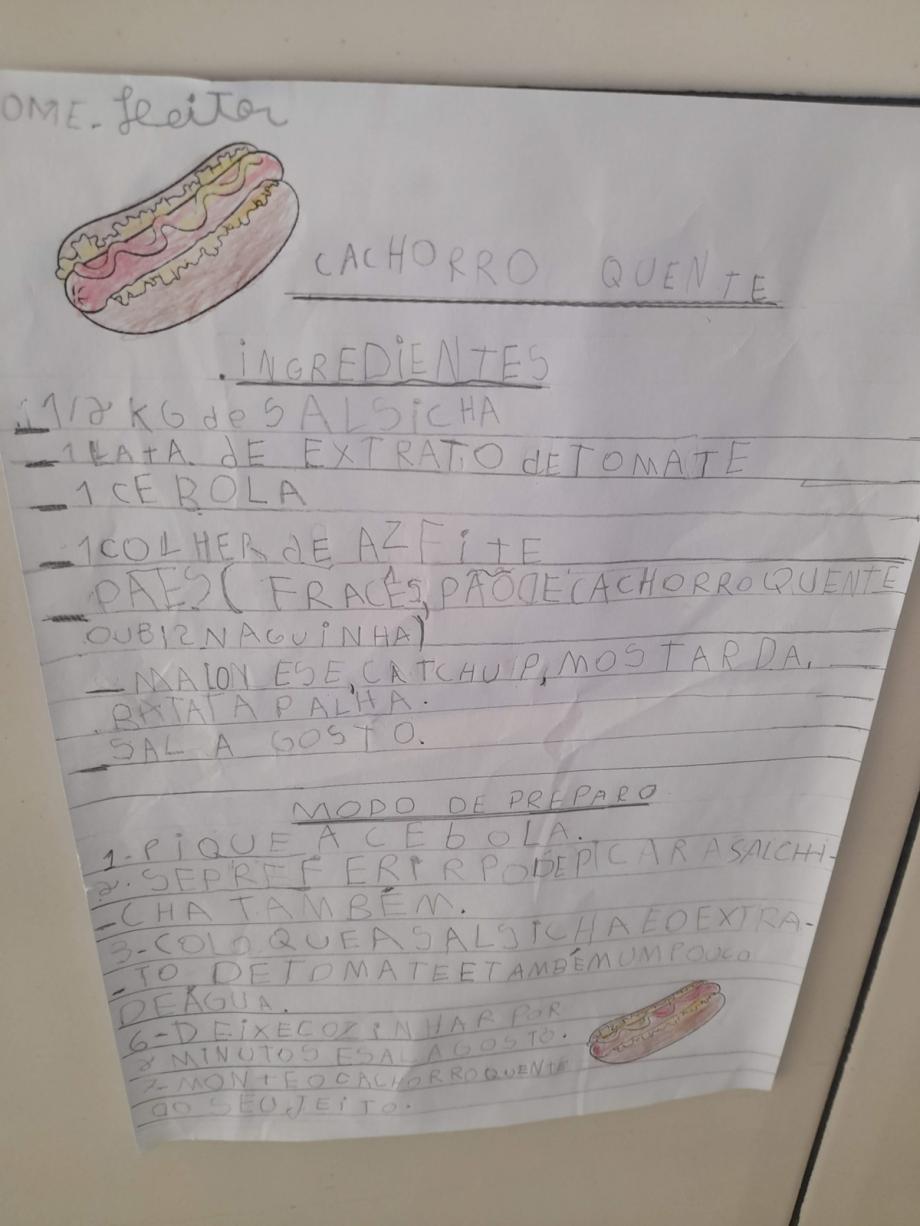 OME. Heitor
CACHORRO QUENTE
.iNGREDiENTES
1/2 KG de SALSiCHA
- 1 LAtA dE EXTRATO dE TOMATE
- 1 CEBOLA
- 1 COLHER dE AZEitE
- PÃES( FRACÊS, PÃO DE CACHORRO QUENTE
OU BIZNAGUiNHA)
- MAION ESE, CATCHUP, MOSTARDA,
BATATA PALHA.
- SAL A GOSTO.
MODO DE PREPARO
1- PiQUE A CEbOLA.
2- SE PREFERIR PODE PICAR A SALCHI-
-CHA TAMBÉM.
3- COLOQUE A SALSICHA E O EXTRA-
-TO DE TOMATE E TAMBÉM UM POUCO
DE ÁGUA.
6- DEIXE COZINHAR POR
2 MINUTOS E SAL A GOSTO.
7- MONTE O CACHORRO QUENTE
ao SEU JEITO.